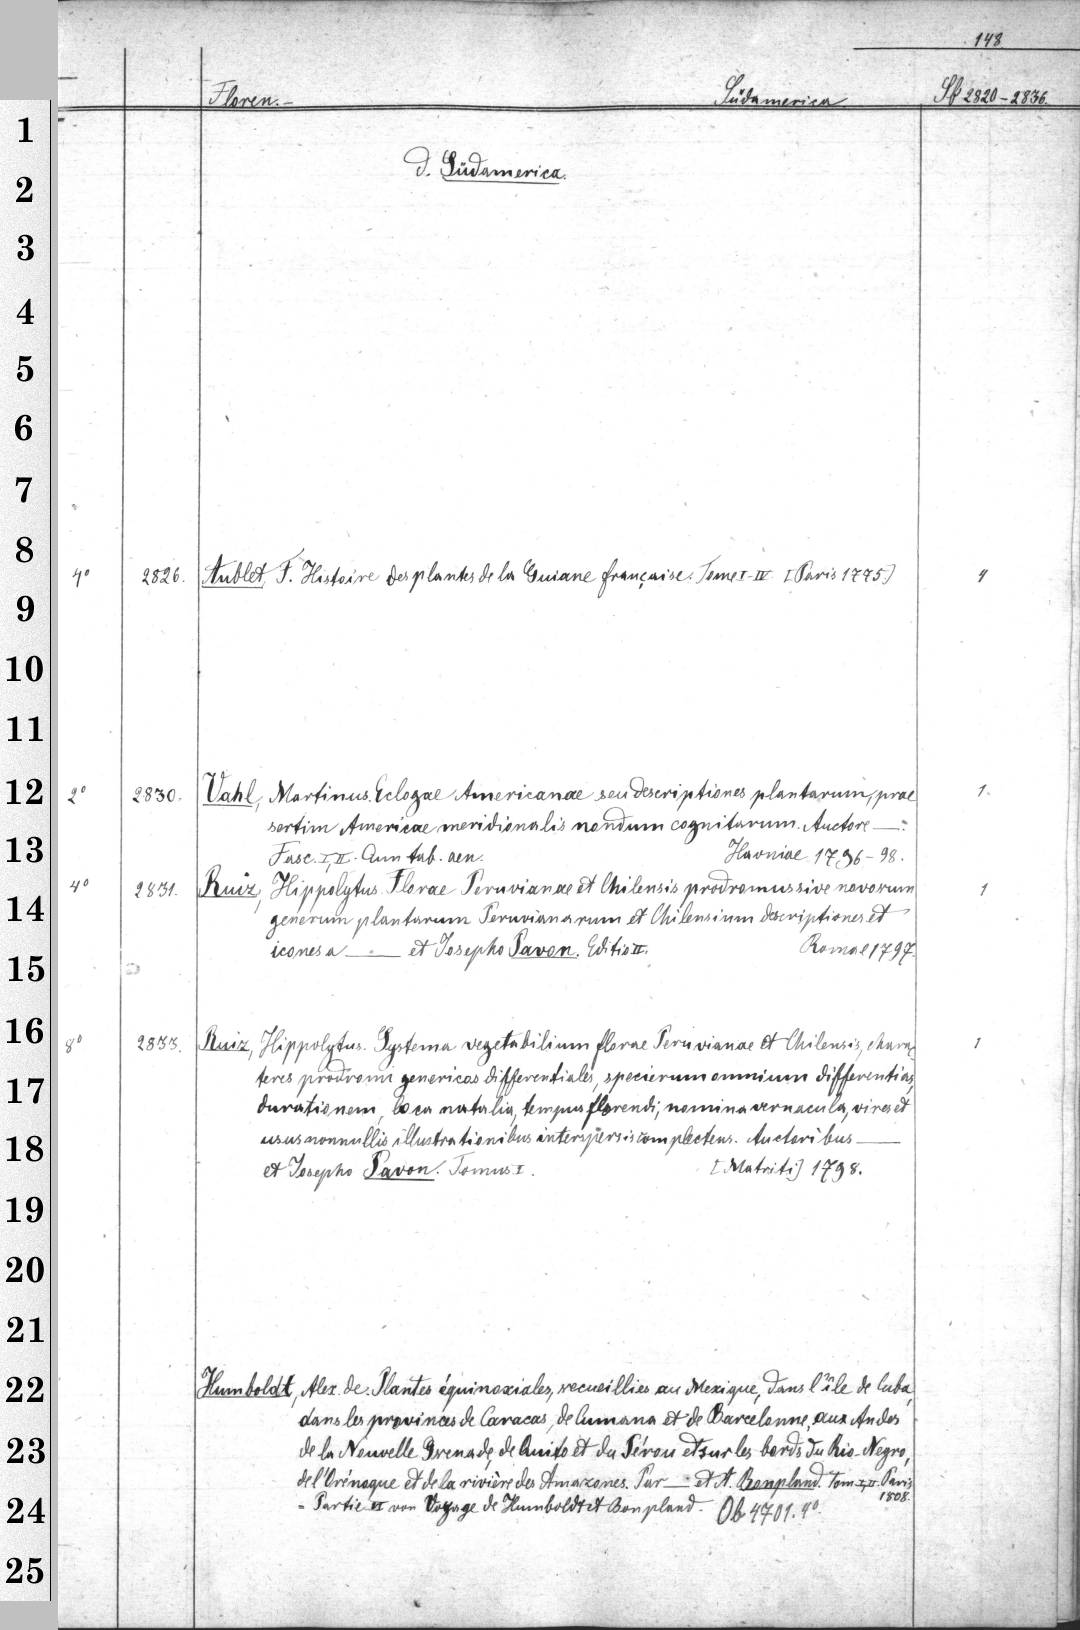 148
Floren.- Südamerica Sf 2820-2836.
d. Südamerica.
4° 2826. Aublet, F. Histoire des plantes de la Guiane française. Tome I-IV. [Paris 1775] 4
2° 2830. Vahl, Martinus. Eclogae Americanae seu descriptiones plantarum, prae 1.
sertim Americae meridionalis nondum cognitarum. Auctore —.
Fasc. I, II. Cum tab. aen. Havniae 1796-98.
4° 2831. Ruiz, Hippolytus. Florae Peruvianae et Chilensis prodromus sive novorum 1
generum plantarum Peruvianarum et Chilensium descriptiones et
icones a — et Josepho Pavon. Editio II. Romae 1797.
8° 2833. Ruiz, Hippolytus. Systema vegetabilium florae Peruvianae et Chilensis, charac 1
teres prodromi genericos differentiales, specierum omnium differentias,
durationem, loca natalia, tempus florendi, nomina vernacula, vires et
usus nonnullis illustrationibus interspersis complectens. Auctoribus —
et Josepho Pavon. Tomus I. [Matriti] 1798.
Humboldt, Alex. de. Plantes équinoxiales, recueillies au Mexique, dans l'île de Cuba,
dans les provinces de Caracas, de Cumana et de Barcelonne, aux Andes
de la Nouvelle Grenade, de Quito et du Pérou et sur les bords du Rio-Negro,
de l'Orénoque et de la rivière des Amazones. Par — et A. Bonpland. Tom I, II. Paris
1808.
= Partie VI von Voyage de Humboldt et Bonpland — Ob 4701. 4°.
1
2
3
4
5
6
7
8
9
10
11
12
13
14
15
16
17
18
19
20
21
22
23
24
25